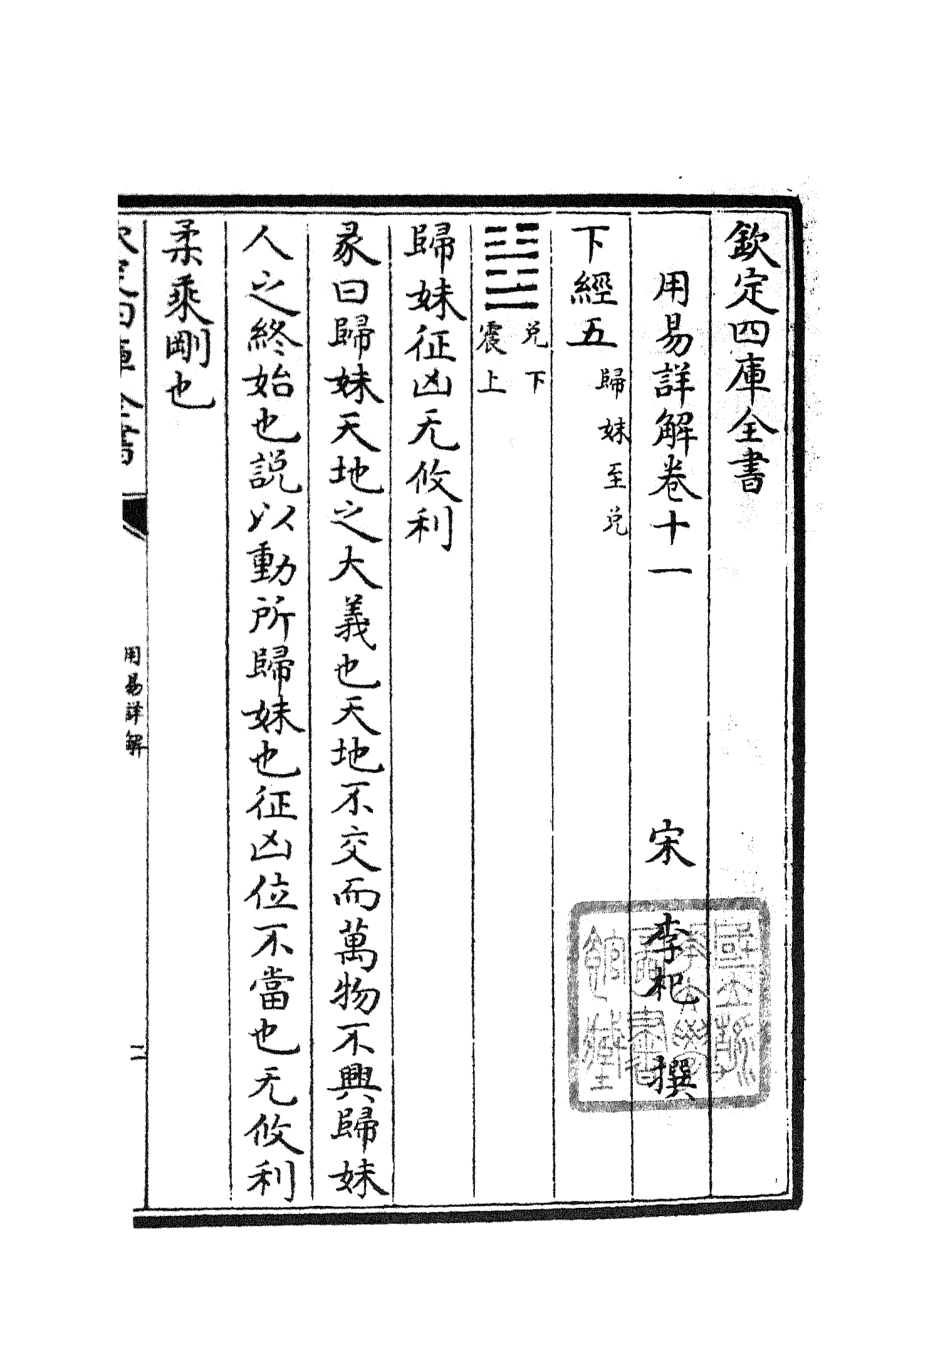 欽定四庫全書
用易詳解卷十一 宋 李杞 撰
下經五 歸妹至兌
䷵ 兌下 震上
歸妹征凶无攸利
彖曰歸妹天地之大義也天地不交而萬物不興歸妹
人之終始也説以動所歸妹也征凶位不當也无攸利
柔乘剛也
用易詳解